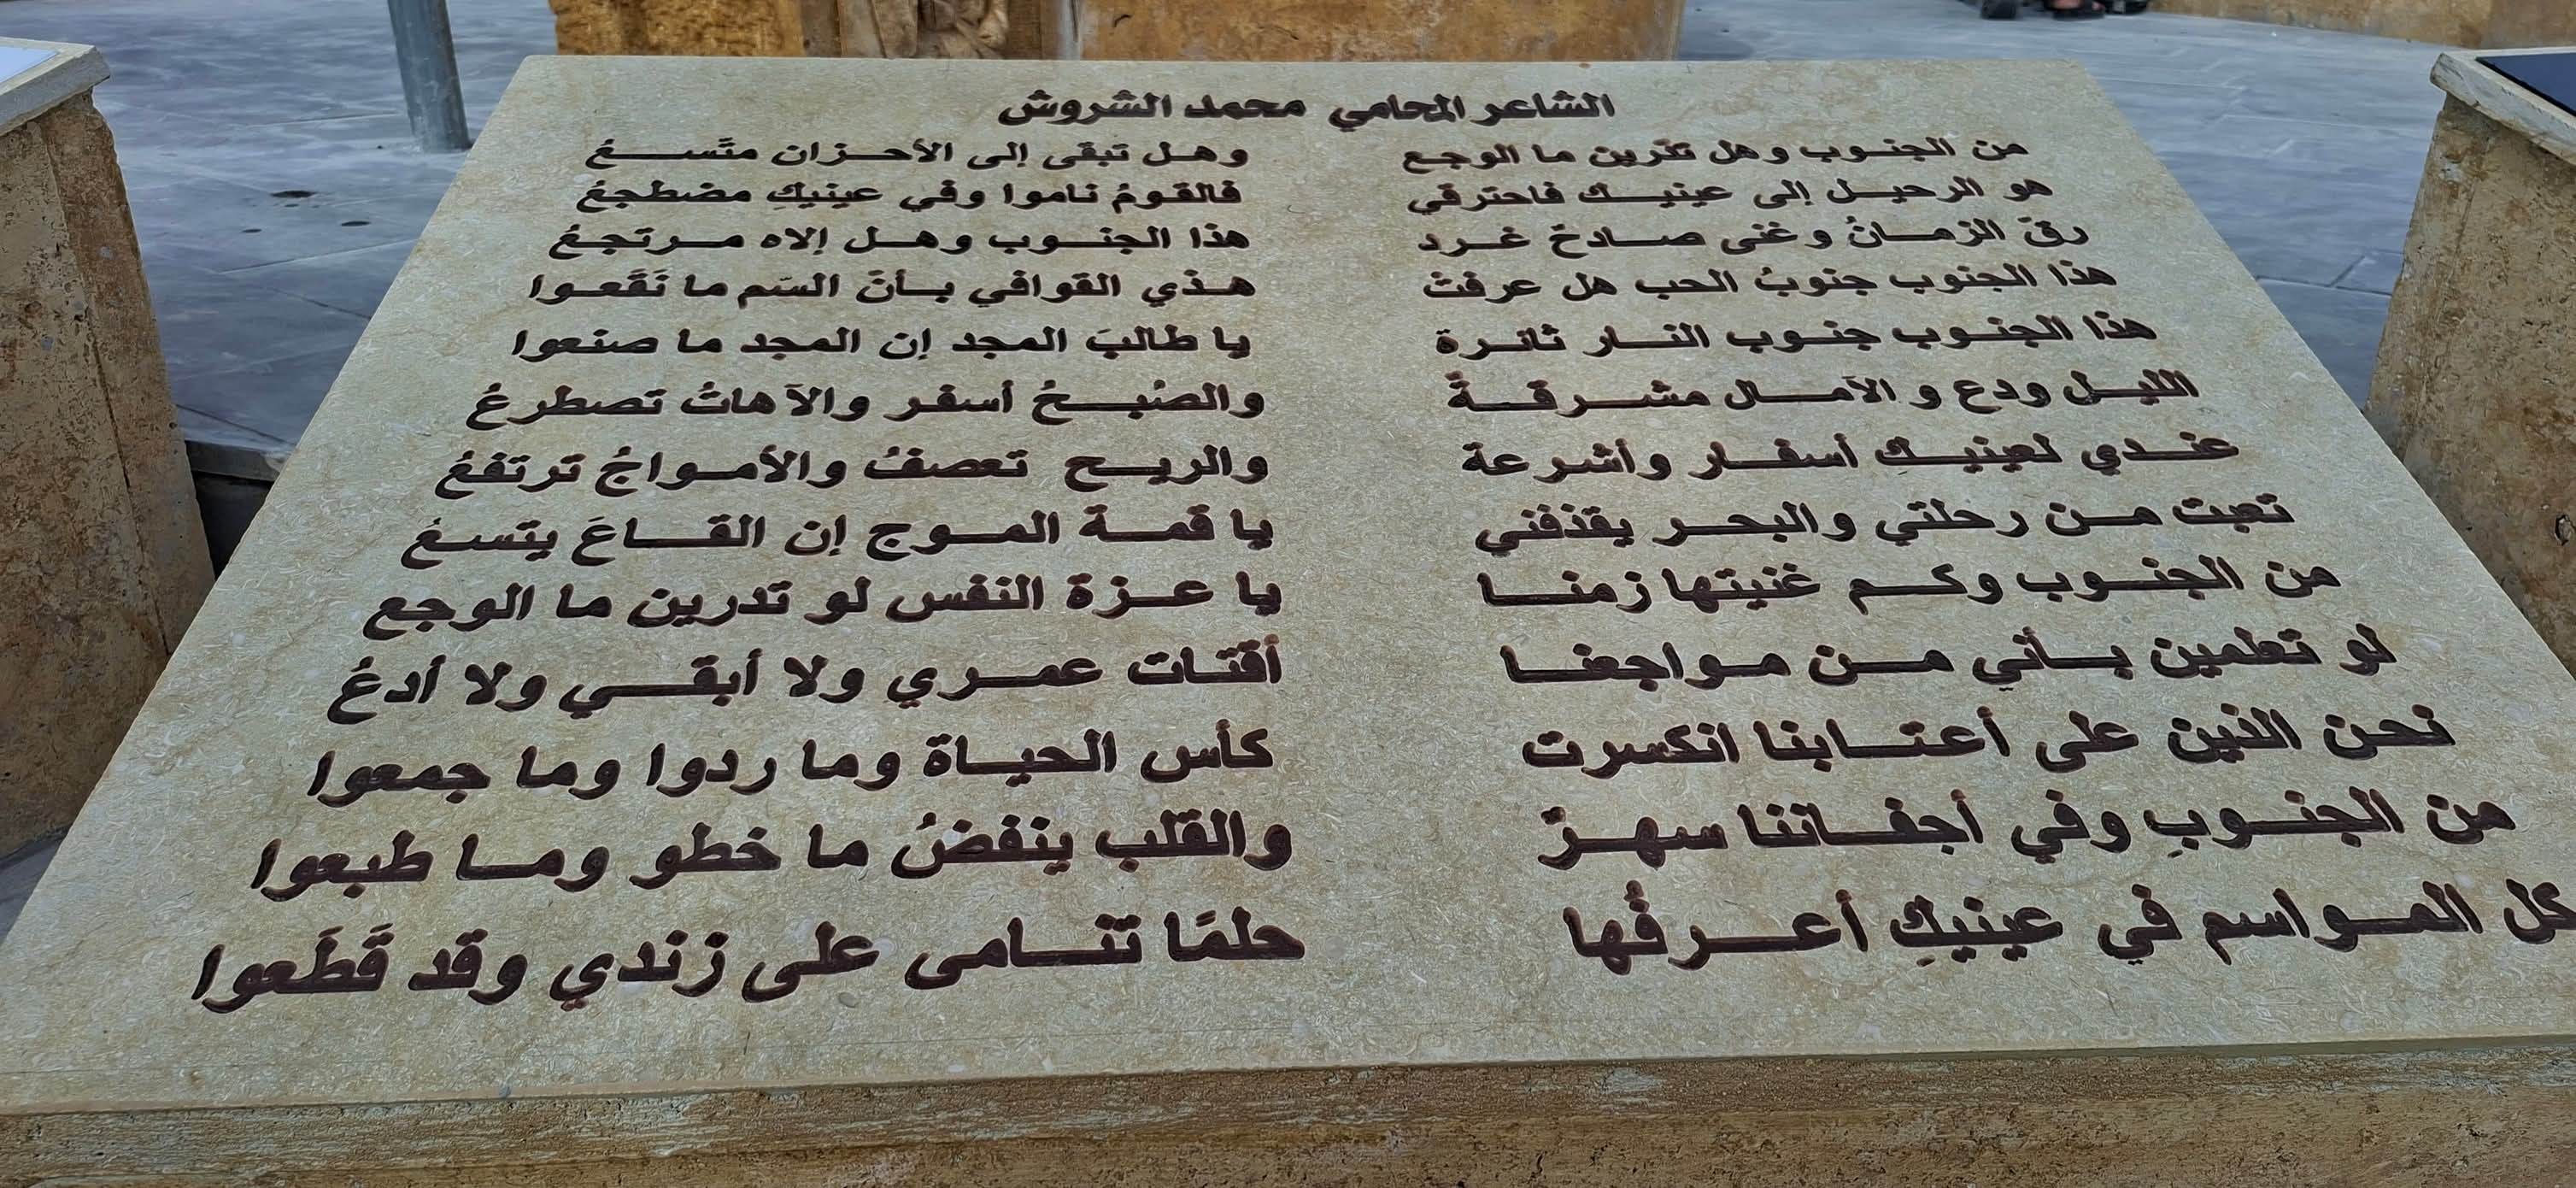 الشاعر المحامي محمد الشروش
من الجنوب وهل تدرين ما الوجع وهل تبقى إلى الأحزان متَّسعُ
هو الرحيل إلى عينيك فاحترقي فالقومُ ناموا وفي عينيكِ مضطجعُ
رقّ الزمانُ وغنى صادحٌ غرد هذا الجنوب وهل إلاه مرتجعُ
هذا الجنوب جنوبُ الحب هل عرفتْ هذي القوافي بأنّ السّم ما نَقَّعوا
هذا الجنوب جنوب النار ثائرة يا طالبَ المجد إن المجد ما صنعوا
الليل ودع و الآمال مشرقةٌ والصُبحُ أسفر والآهاتُ تصطرعُ
عندي لعينيكِ أسفار وأشرعة والريح تعصفُ والأمواجُ ترتفعُ
تعبت من رحلتي والبحر يقذفني يا قمة الموج إن القاعَ يتسعُ
من الجنوب وكم غنيتها زمنا يا عزة النفس لو تدرين ما الوجع
لو تعلمين بأني من مواجعنا أقتات عمري ولا أبقي ولا أدعُ
نحن الذين على أعتابنا انكسرت كأس الحياة وما ردوا وما جمعوا
من الجنوبِ وفي أجفاننا سهرٌ والقلب ينفضُ ما خطو وما طبعوا
كل المواسم في عينيكِ أعرفُها حلمًا تنامى على زندي وقد قَطَعوا